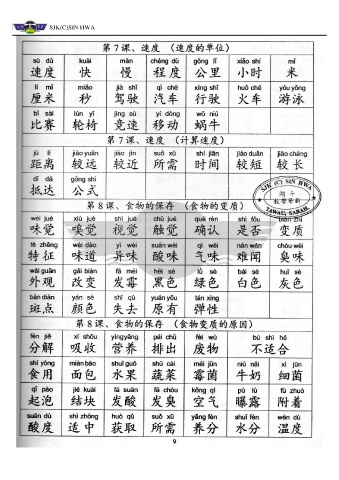 SJK(C)SIN HWA
第7课、速度 (速度的单位)
sù dù kuài màn chéng dù gōng lǐ xiǎo shí mǐ
速度 快 慢 程度 公里 小时 米
lí mǐ miǎo jià shǐ qì chē xíng shǐ huǒ chē yóu yǒng
厘米 秒 驾驶 汽车 行驶 火车 游泳
bǐ sài lún yǐ jìng sù yí dòng wō niú
比赛 轮椅 竞速 移动 蜗牛
第7课、速度 (计算速度)
jù lí jiào yuǎn jiào jìn suǒ xū shí jiān jiào duǎn jiào cháng
距离 较远 较近 所需 时间 较短 较长
dǐ dá gōng shì
抵达 公式
SJK (C) SIN HWA
TAWAU, SABAH
第8课、食物的保存 (食物的变质)
wèi jué xiù jué shì jué chù jué què rèn shì fǒu biàn zhì
味觉 嗅觉 视觉 触觉 确认 是否 变质
tè zhēng wèi dào yì wèi suān wèi qì wèi nán wén chòu wèi
特征 味道 异味 酸味 气味 难闻 臭味
wài guān gǎi biàn fā méi hēi sè lǜ sè bái sè huī sè
外观 改变 发霉 黑色 绿色 白色 灰色
bān diǎn yán sè shī qù yuán yǒu tán xìng
斑点 颜色 失去 原有 弹性
第8课、食物的保存 (食物变质的原因)
fēn jiě xī shōu yíng yǎng pái chū fèi wù bú shì hé
分解 吸收 营养 排出 废物 不适合
shí yòng miàn bāo shuǐ guǒ shū cài méi jūn niú nǎi xì jūn
食用 面包 水果 蔬菜 霉菌 牛奶 细菌
qǐ pào jié kuài fā suān fā chòu kōng qì pù lù fù zhuó
起泡 结块 发酸 发臭 空气 曝露 附着
suān dù shì zhōng huò qǔ suǒ xū yǎng fèn shuǐ fèn wēn dù
酸度 适中 获取 所需 养分 水分 温度
9